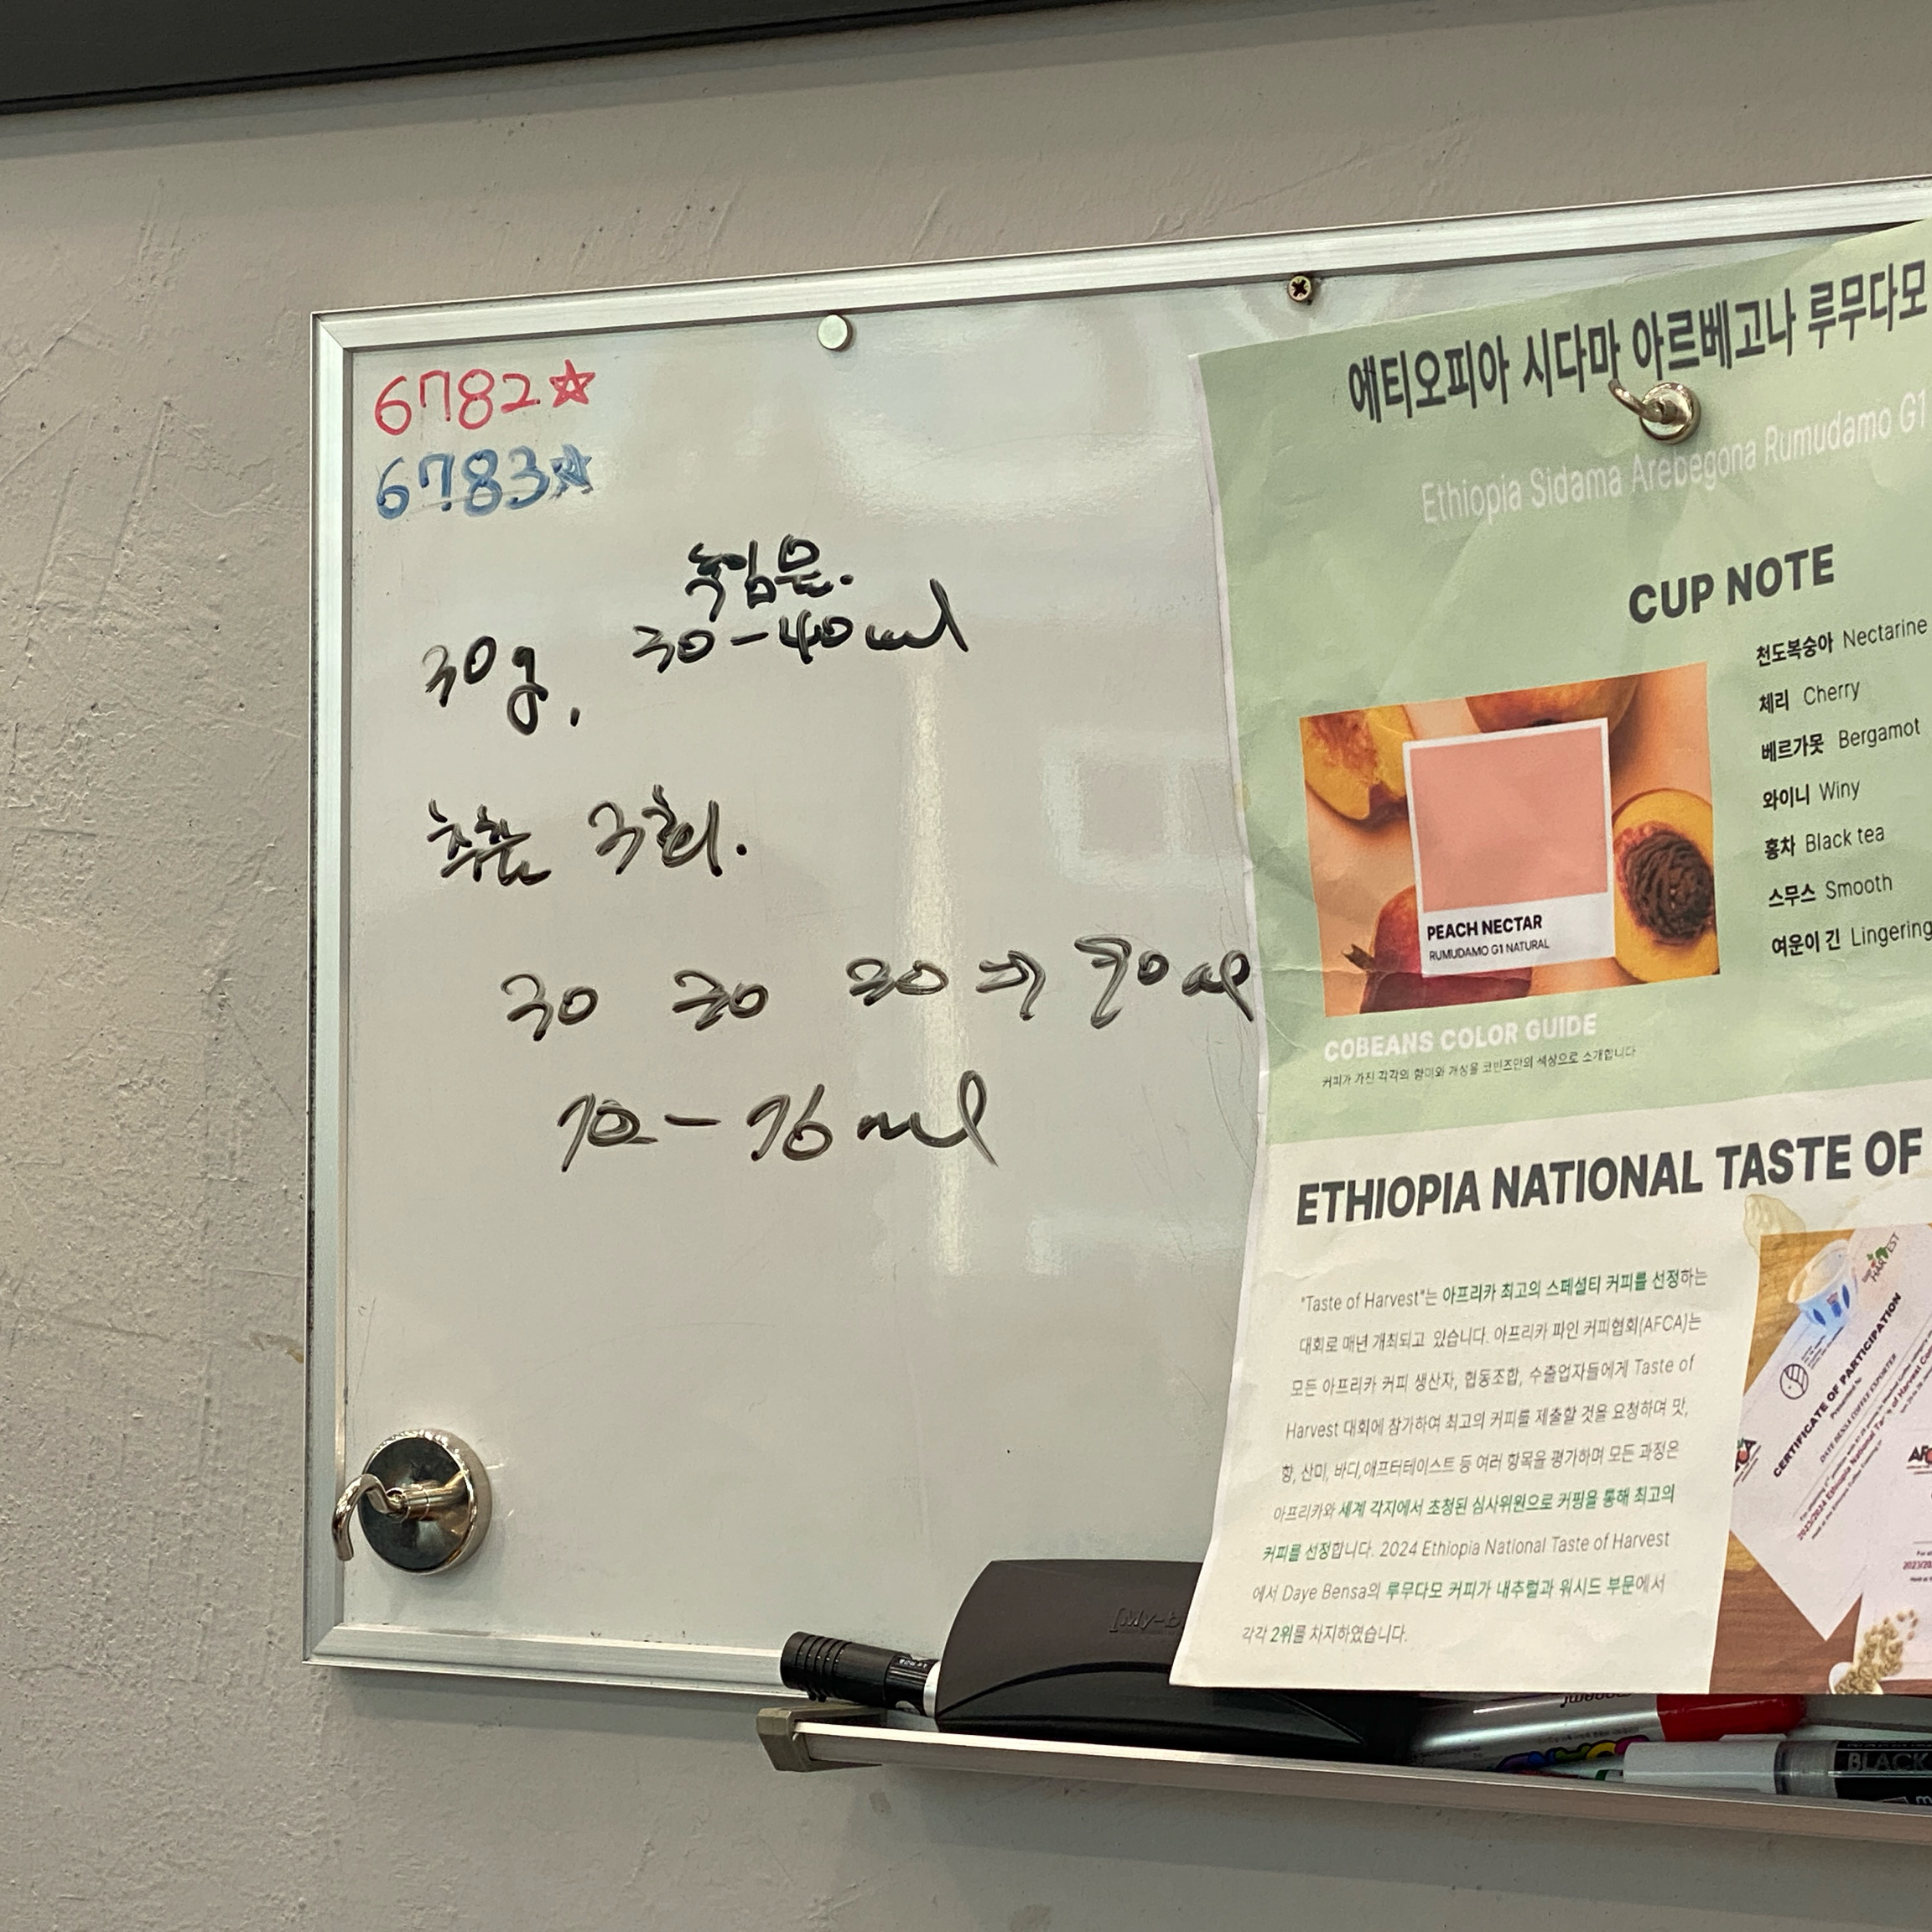 6782☆
6783☆
뜸은.
30g, 30-40ml
추출 3회.
30 30 30 → 90ml
70-76ml
에티오피아 시다마 아르베고나 루무다모
Ethiopia Sidama Arebegona Rumudamo G1
CUP NOTE
천도복숭아 Nectarine
체리 Cherry
베르가못 Bergamot
와이니 Winy
홍차 Black tea
스무스 Smooth
여운이 긴 Lingering
PEACH NECTAR
RUMUDAMO G1 NATURAL
COBEANS COLOR GUIDE
커피가 가진 각각의 향미와 개성을 코빈즈만의 색상으로 소개합니다
ETHIOPIA NATIONAL TASTE OF
"Taste of Harvest"는 아프리카 최고의 스페셜티 커피를 선정하는
대회로 매년 개최되고 있습니다. 아프리카 파인 커피협회(AFCA)는
모든 아프리카 커피 생산자, 협동조합, 수출업자들에게 Taste of
Harvest 대회에 참가하여 최고의 커피를 제출할 것을 요청하며 맛,
향, 산미, 바디,애프터테이스트 등 여러 항목을 평가하며 모든 과정은
아프리카와 세계 각지에서 초청된 심사위원으로 커핑을 통해 최고의
커피를 선정합니다. 2024 Ethiopia National Taste of Harvest
에서 Daye Bensa의 루무다모 커피가 내추럴과 워시드 부문에서
각각 2위를 차지하였습니다.
HARVEST
CERTIFICATE OF PARTICIPATION
BLACK